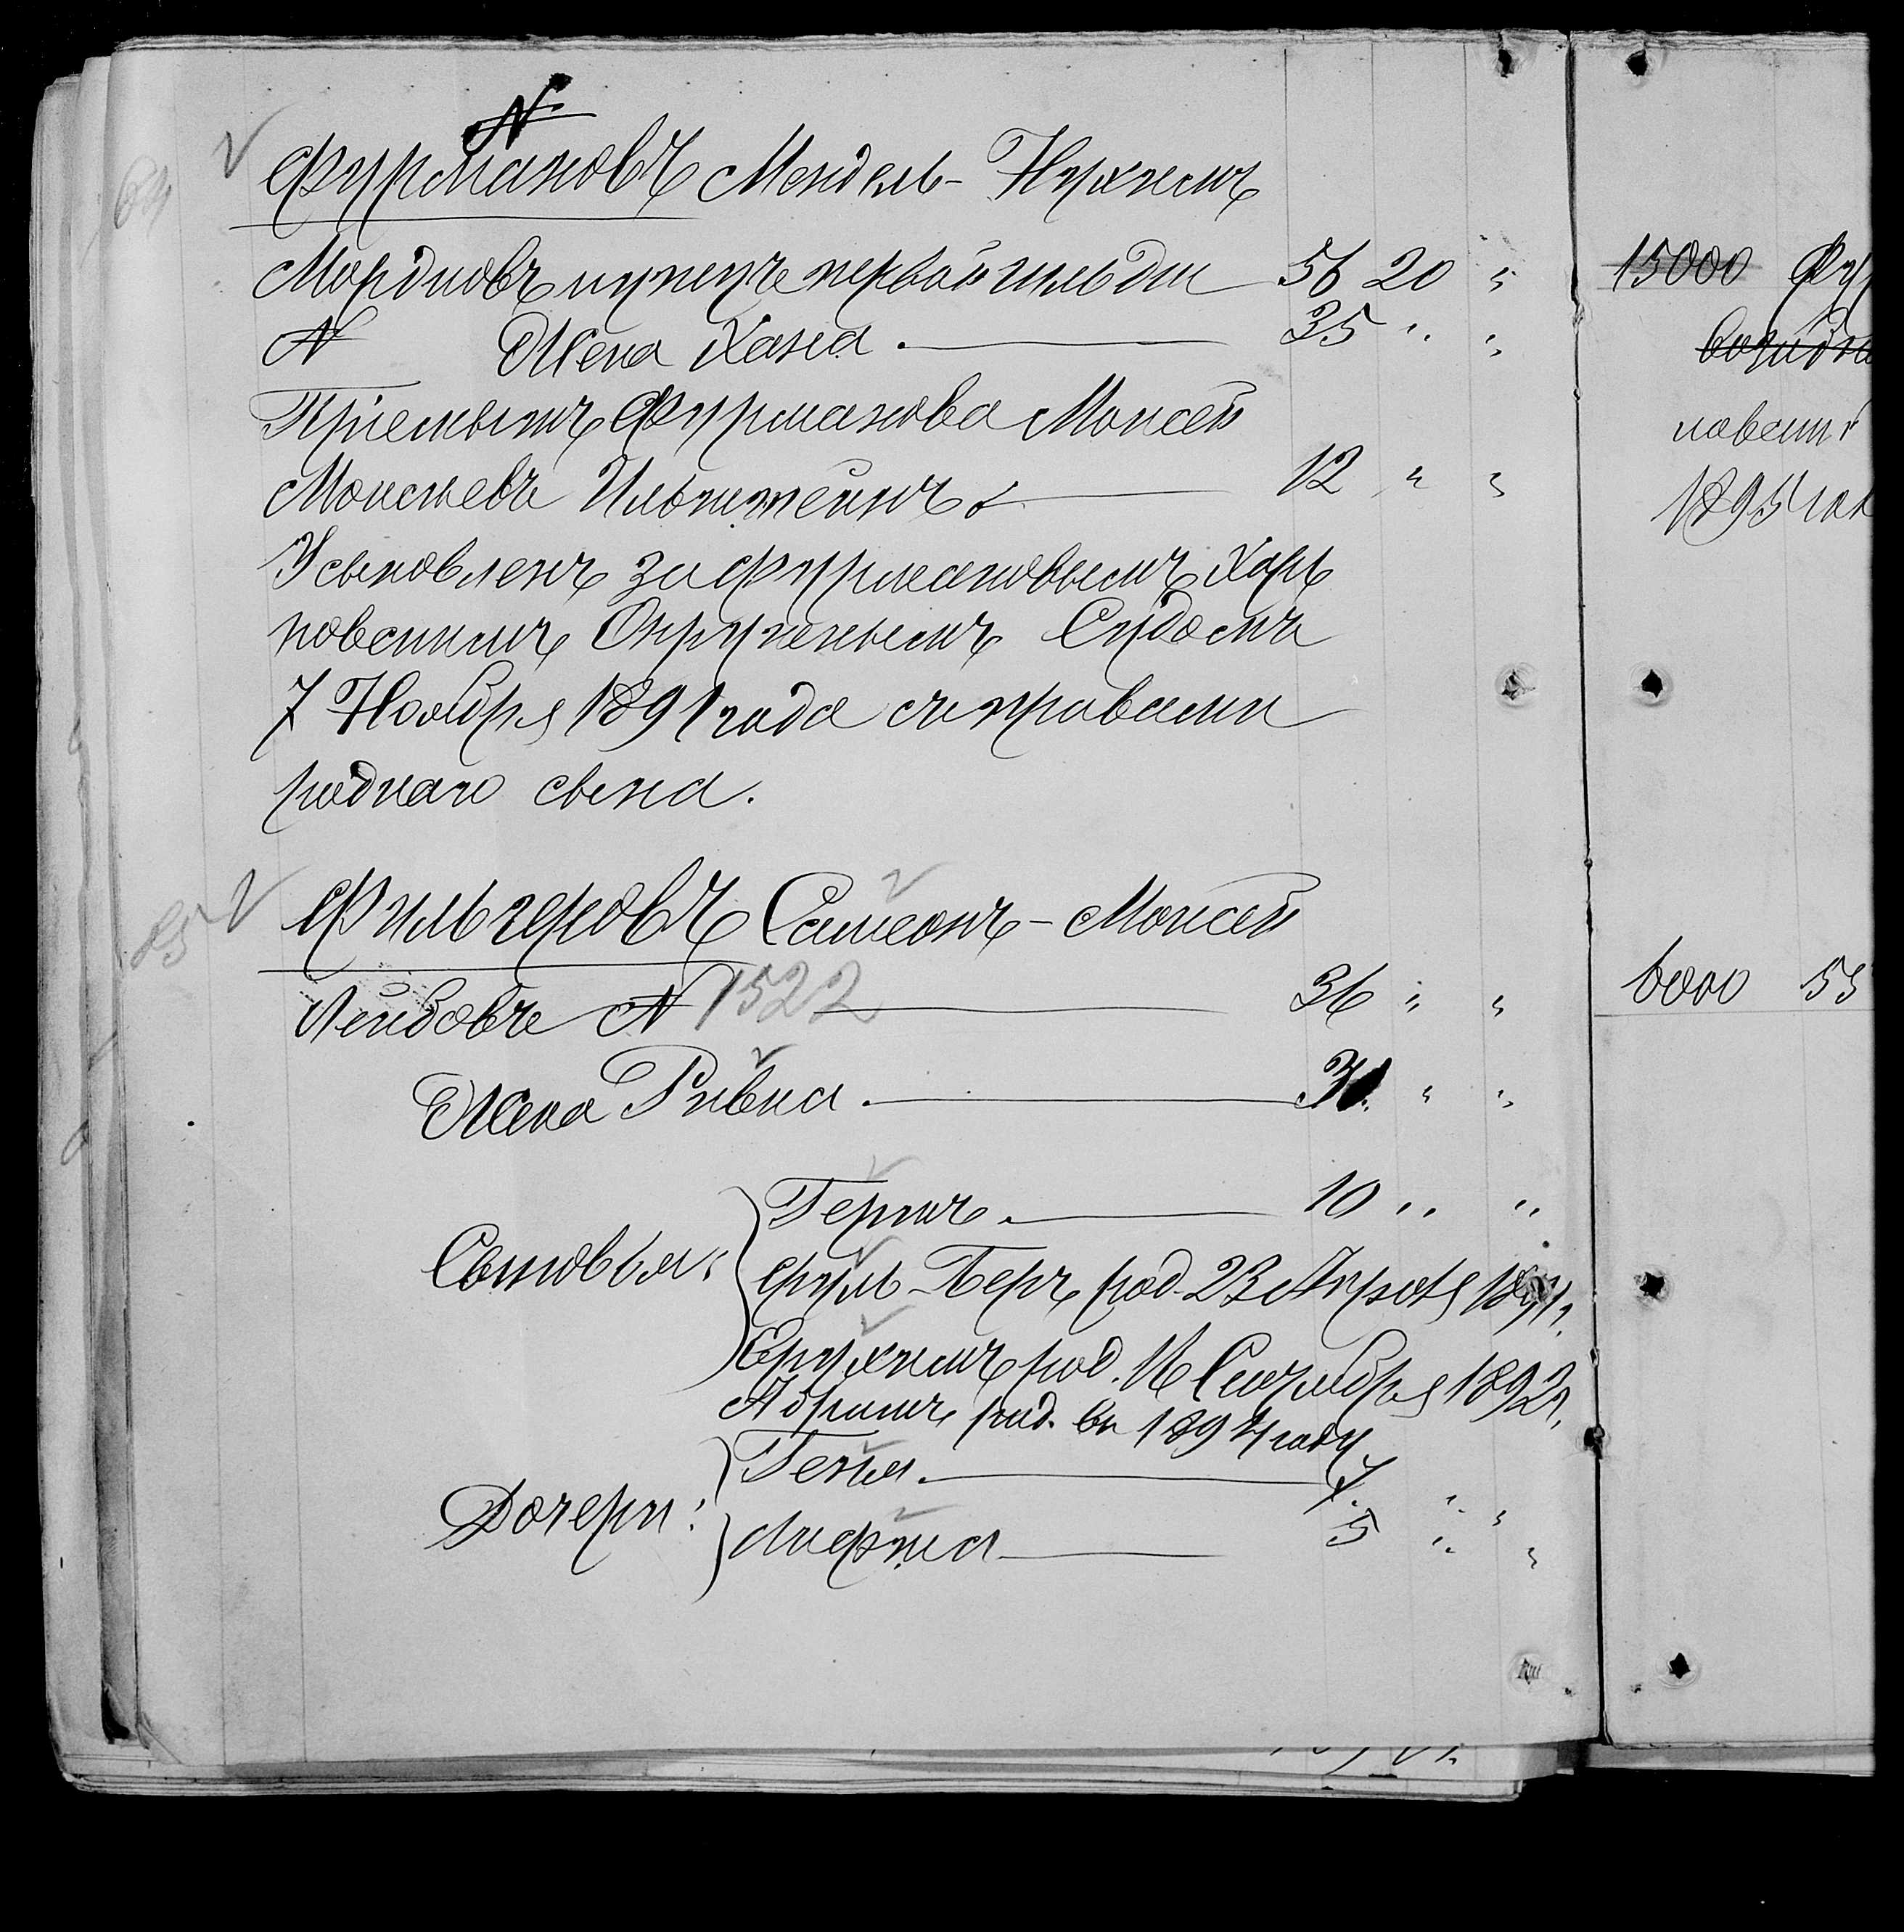 №
64 Фурмановъ Мендель-Нухимъ
Мордковъ купецъ первой гильдіи 56 20 "
№ Жена Хана. 35 " "
Пріемышъ Фурманова Моисей
Моисеевъ 12 " "
Усыновленъ за Фурмановымъ Харь
ковскимъ Окружнымъ Судомъ
7 Ноября 1891 года съ правами
роднаго сына.
85 Фильгеровъ Самсонъ-Моисей
Лейбовъ № 1522 36 " "
Жена Ривка. 30 " "
Сыновья: Гершъ. 10 " "
Фуль-Беръ род. 23 Апрѣля 1891 г.
Ерухимъ род. 16 Сентября 1892 г.
Абрамъ род. въ 1894 году
Дочери: Геня. 7 " "
5 " "
15000 Фур
1895 год
6000 55